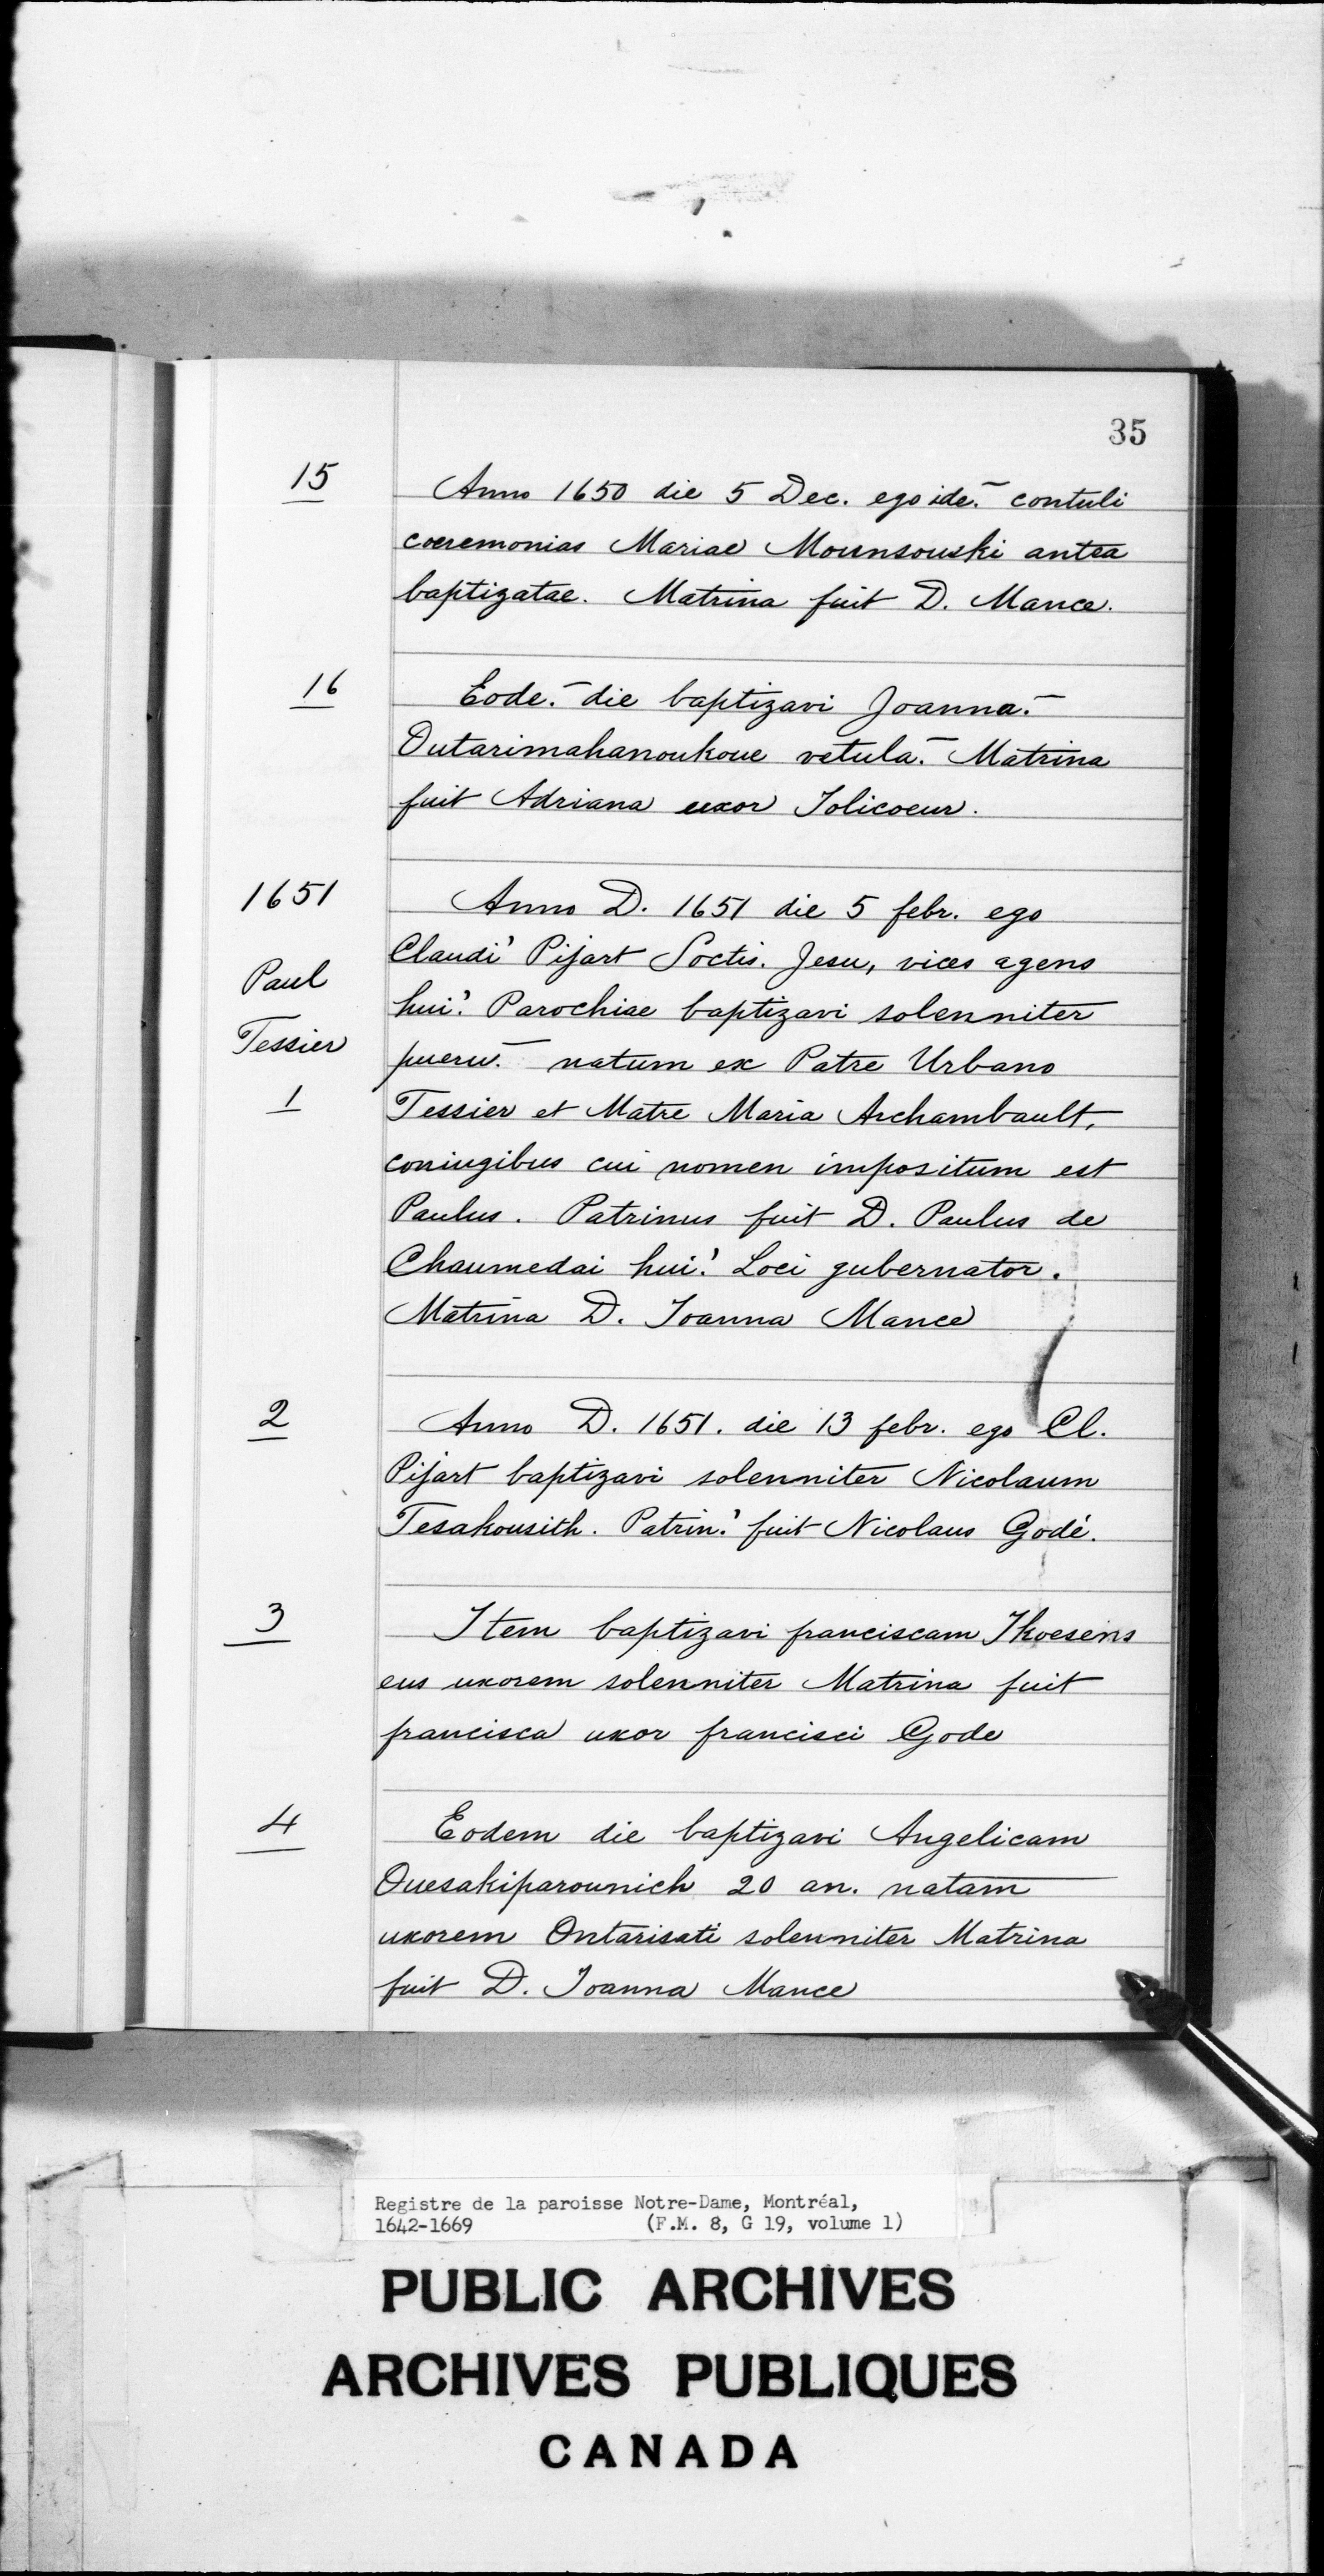 35
15
Anno 1650 die 5 Dec. ego ide.̄ contuli
coeremonias Mariae Mounsouski antea
baptizatae. Matrina fuit D. Mance.
16
Eode.̄ die baptizavi Joanna.̄
Outarimahanoukoue vetula.̄ Matrina
fuit Adriana uxor Jolicoeur.
1651
Paul
Tessier
1
Anno D. 1651 die 5 febr. ego
Claudi' Pijart Soctis. Jesu, vices agens
hui.' Parochiae baptizavi solenniter
pueru.̄ natum ex Patre Urbano
Tessier et Matre Maria Archambault,
coniugibus cui nomen impositum est
Paulus. Patrinus fuit D. Paulus de
Chaumedai hui.' Loci gubernator.
Matrina D. Joanna Mance
2
Anno D. 1651. die 13 febr. ego Cl.
Pijart baptizavi solenniter Nicolaum
Tesakousith. Patrin.' fuit Nicolaus Godé.
3
Item baptizavi franciscam Ikoesens
eus uxorem solenniter Matrina fuit
francisca uxor francisci Gode
4
Eodem die baptizavi Angelicam
Ouesakiparounich 20 an. natam
uxorem Ontarisati solenniter Matrina
fuit D. Joanna Mance
Registre de la paroisse Notre-Dame, Montréal,
1642-1669 (F.M. 8, G 19, volume 1)
PUBLIC ARCHIVES
ARCHIVES PUBLIQUES
CANADA